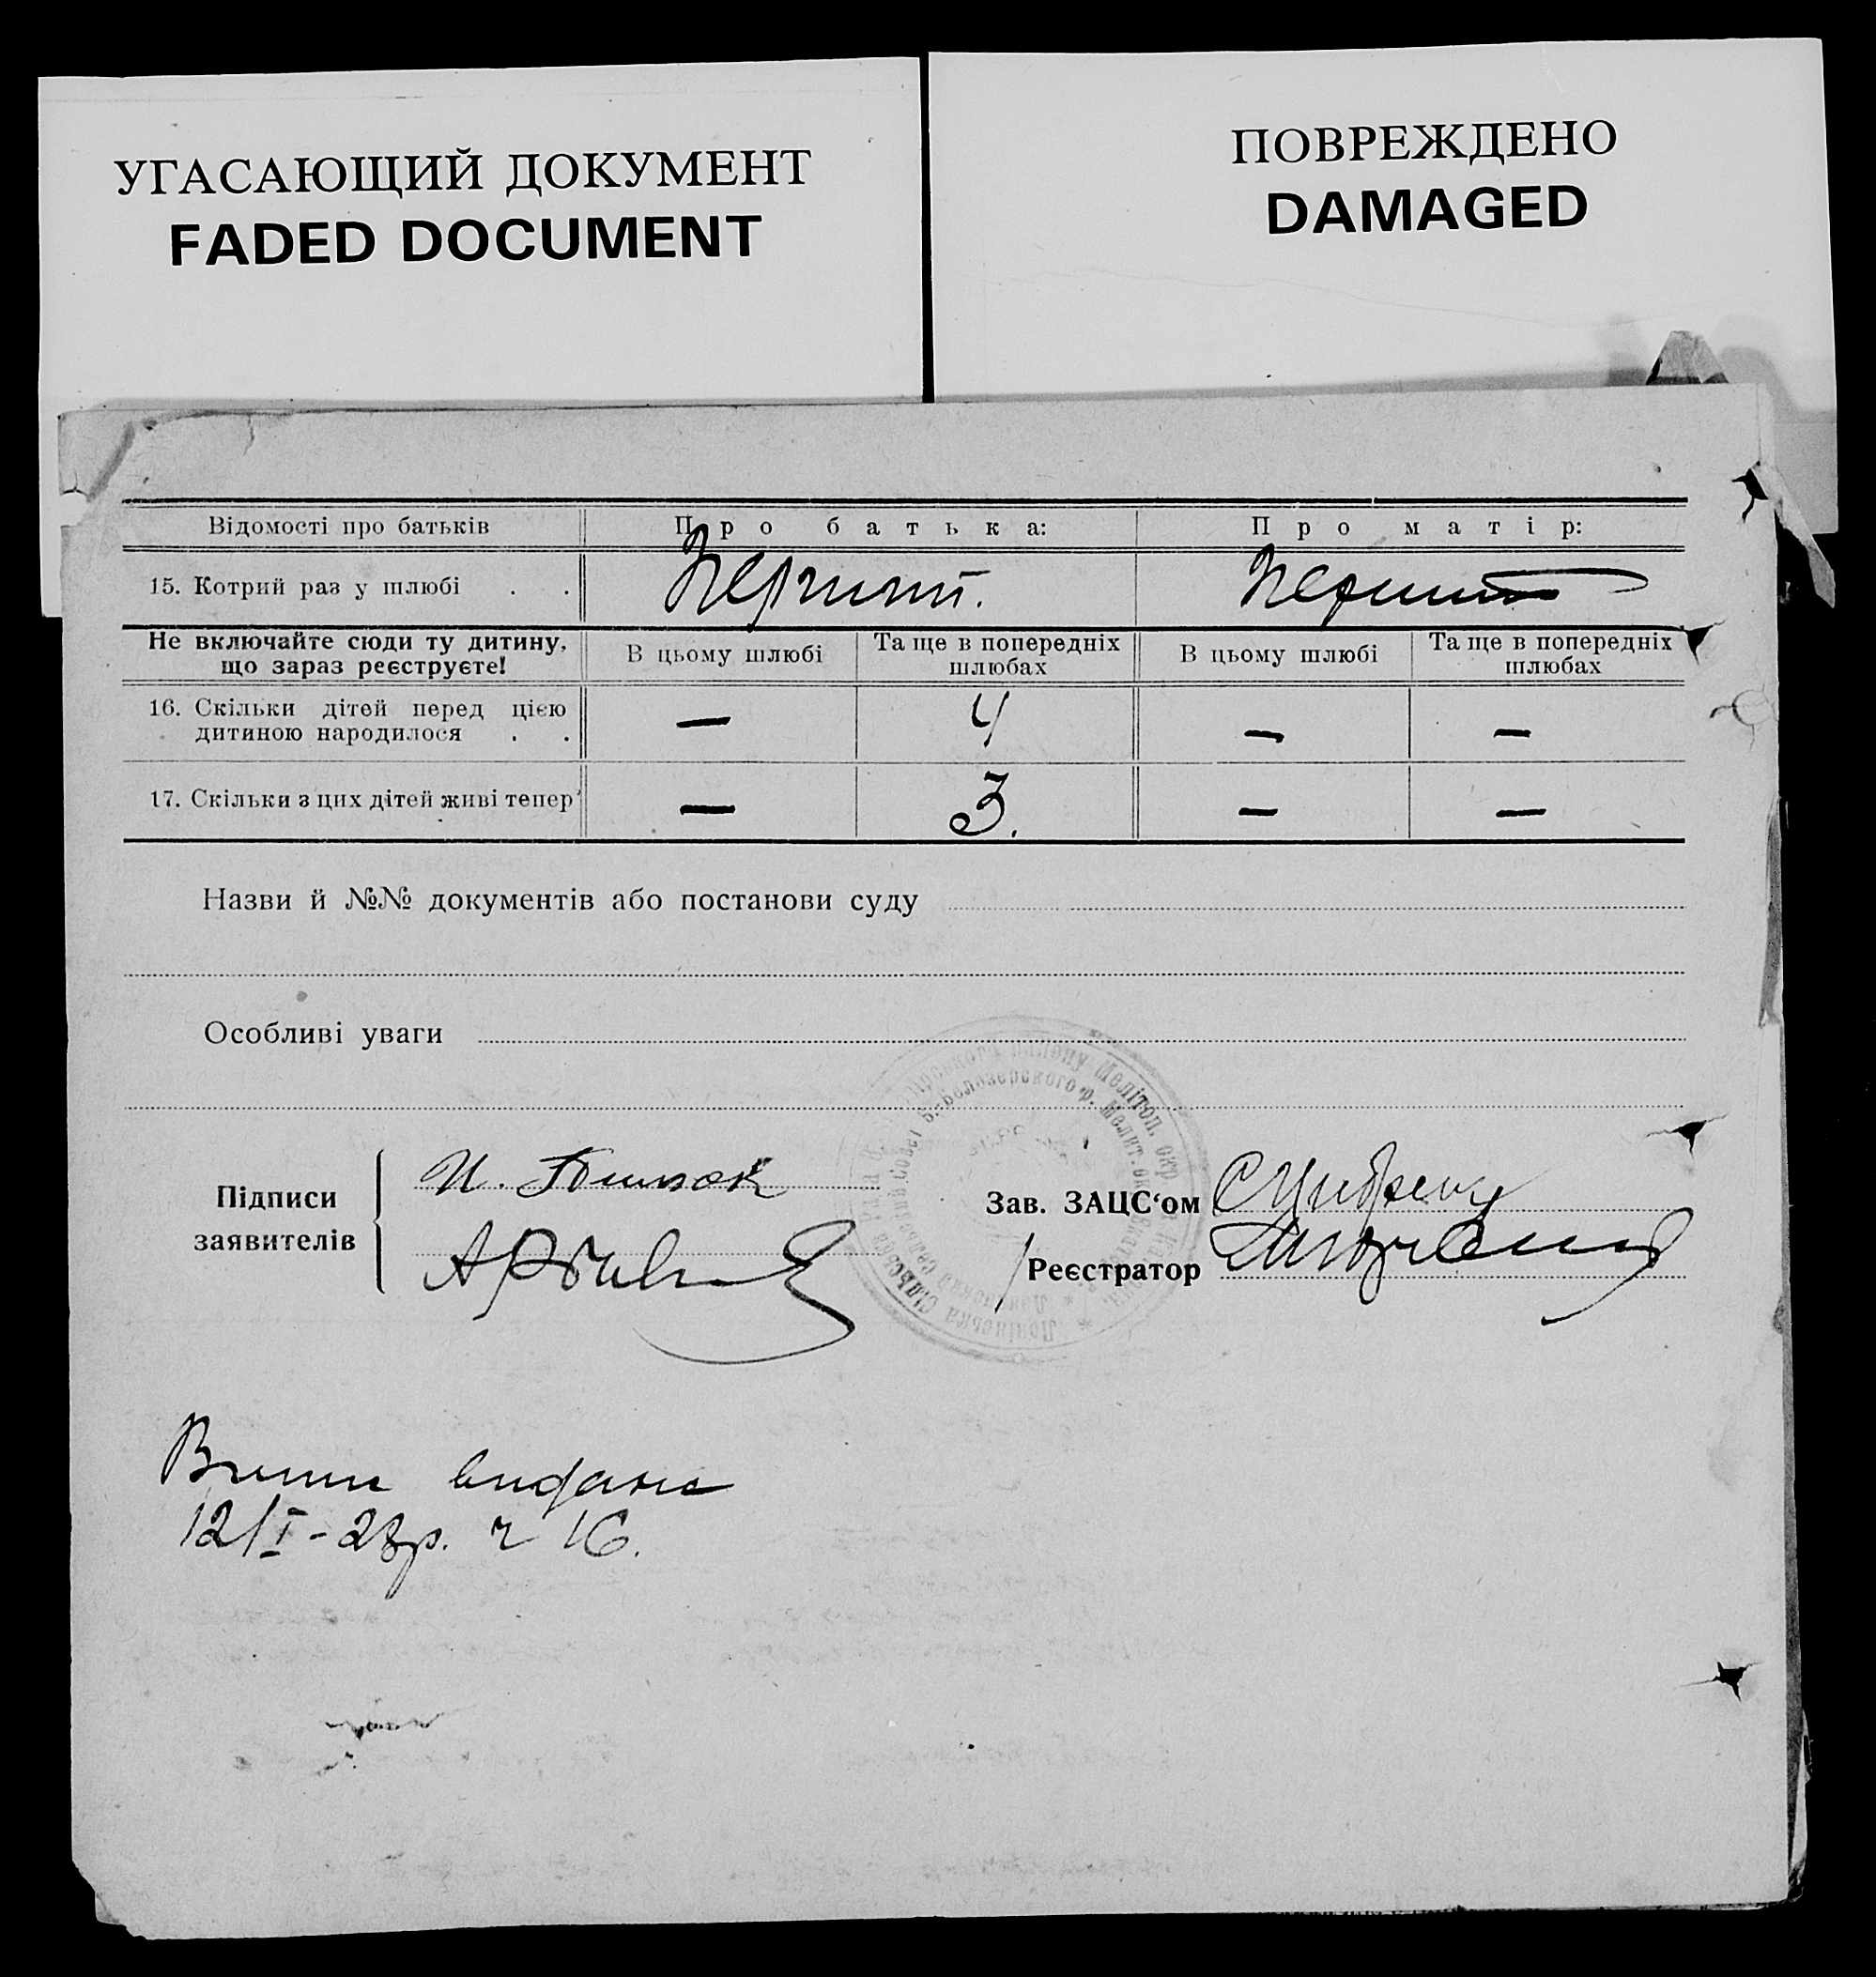 УГАСАЮЩИЙ ДОКУМЕНТ
FADED DOCUMENT
ПОВРЕЖДЕНО
DAMAGED
Відомості про батьків Про батька: Про матір:
15. Котрий раз у шлюбі . . Перший. Перший
Не включайте сюди ту дитину, що зараз реєструєте! В цьому шлюбі Та ще в попередніх шлюбах В цьому шлюбі Та ще в попередніх шлюбах
16. Скільки дітей перед цією
дитиною народилося . . — 4 — —
17. Скільки з цих дітей живі тепер — 3. — —
Назви й №№ документів або постанови суду
Особливі уваги
Підписи
заявителів
И.
Зав. ЗАЦС‘ом
Реєстратор
видано
12/I-28р. ч 16.